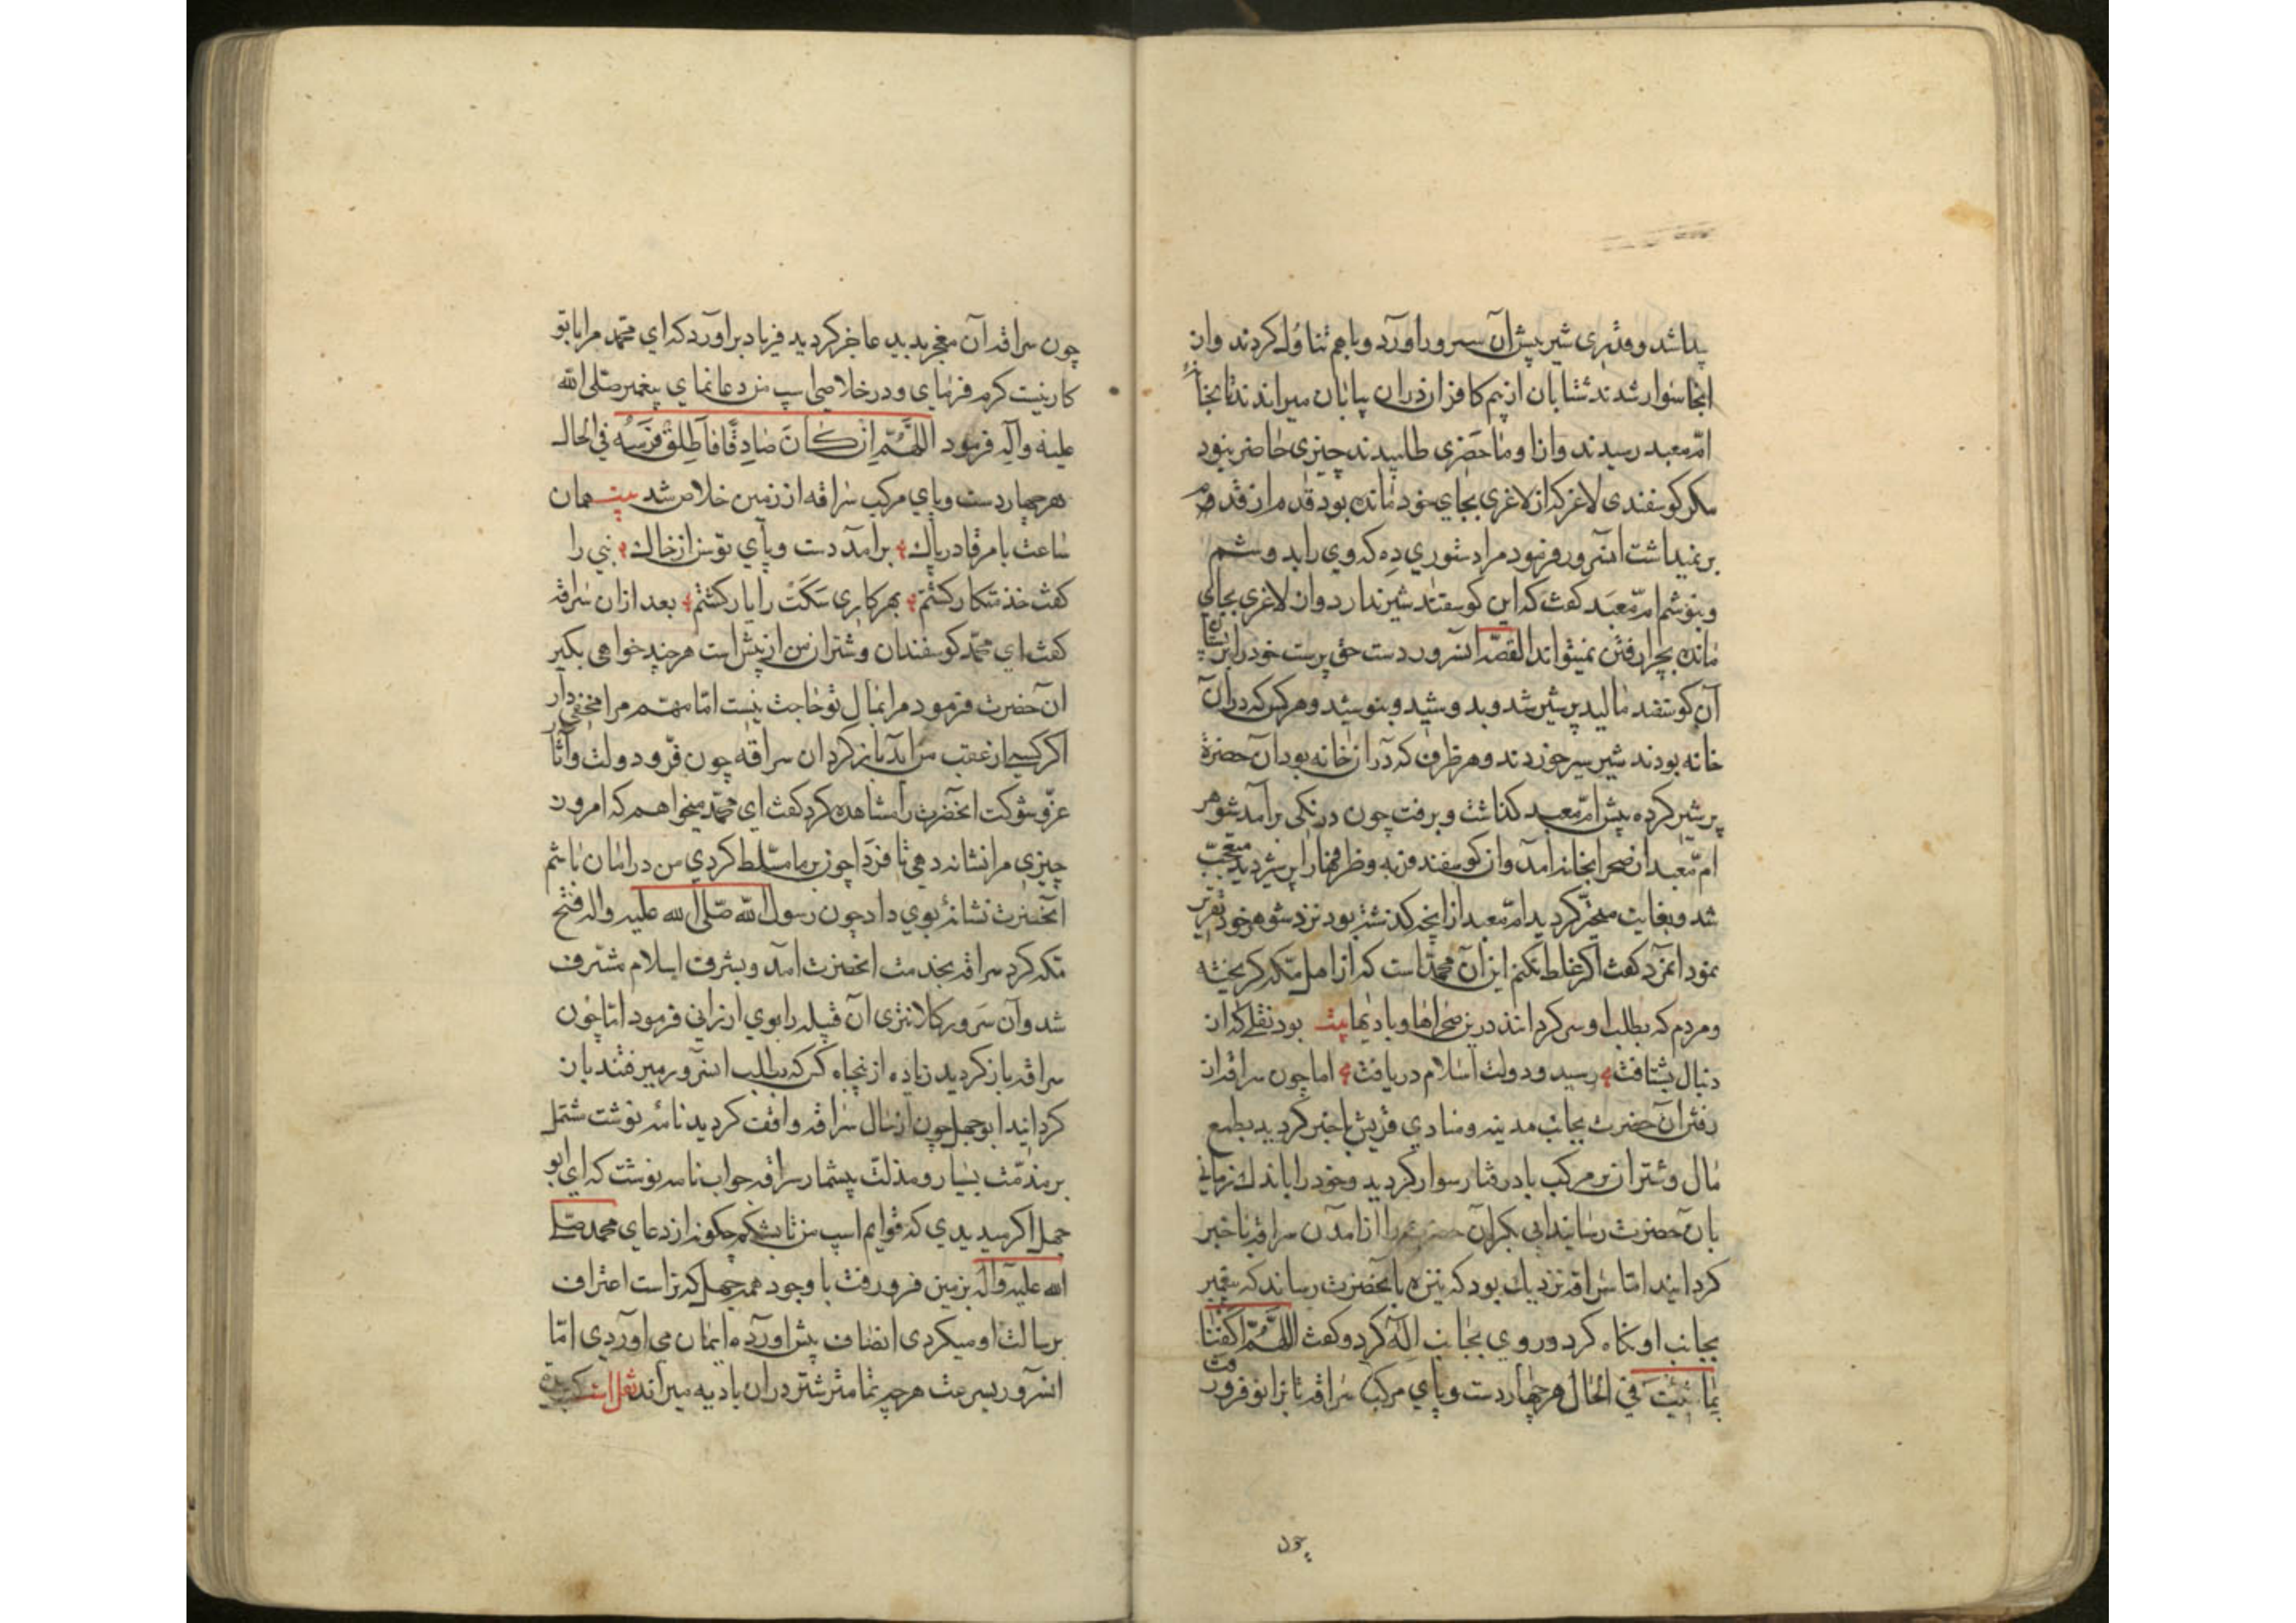 پیدا شد و قدری شیر پیش آن سرور آورد و باهم تناول کردند و از
انجا سوار شدند شتابان از بیم کافران دران بیابان میراندند تا بخانهٔ
امّ معبد رسیدند و از او ماحضری طلبیدند چیزی حاضر نبود
مکر کوسفندی لاغر که از لاغری بجای خود مانده بود قدم از قدم
بر نمیداشت انسرور فرمود مرا دستوری دِه که وی را بدوشم
و بنوشم امّ معبَد کفت که این کوسفند شیر ندارد و از لاغری بجای
مانده بچرا رفتن نمیتواند القصّه انسرور دست حق پرست خود را بر پستان
آن کوسفند مالید پر شیر شد و بدوشید و بنوشید و هر کس که دران
خانه بودند شیر سیر خوردند و هر ظرف که در ان خانه بود ان حضرة
پر شیر کرده پیش امّ معبد کذاشت و برفت چون درنکی برآمد شوهر
امّ معبد از صحرا بخانه آمد و ان کوسفند فربه و ظرفها را پر شیر دید متعجّب
شد و بغایت متحیّر کردید امّ معبد از انچه کذشته بود نزد شوهر خود تقریر
نمود انمرد کفت اکر غلط نکنم این آن محمّد است که از اهل مکّه کریخته
و مردم که بطلب او سرکردانند درین صحراها و بادیها بیت بود نقلی که از
دنبال بشتافت رسید و دولت اسلام دریافت اما چون سراقه از
رفتن آن حضرت بجانب مدینه و منادی قریش باخبر کردید بطمع
مال و شتران بر مرکب بادرفتار سوار کردید و خود را باندك زمانی
بان حضرت رسانید ابی بکر آن حضرت را از امدن سراقه باخبر
کردانید امّا سراقه نزدیك بود که نیزه بآنحضرت رساند که پیغمبر
بجانب او نکاه کرد و روی بجانب اله کرد و کفت اللّهمّ اکفنا
بما شئت فی الحال هر چهار دست و پای مرکب سراقه تا بزانو فرو رفت
چون
چون سراقه آن معجز بدید عاجز کردید فریاد براورد که ای محمّد مرا با تو
کار نیست کرم فرمای و در خلاصی اسپ من دعا نمای پیغمبر صلّی الله
علیه و آله فرمود اللَّهُمَّ اِن کَانَ صَادِقًا فَاَطلِقْ فَرَسَهُ فی الحال
هر چهار دست و پای مرکب سراقه از زمین خلاص شد بیت همان
ساعت بامر قادر پاك برآمد دست و پای توسن از خاك نبی را
کفت خدمتکار کشتم بهر کاری سَکَت را یار کشتم بعد ازان سراقه
کفت ای محمّد کوسفندان و شتران من از پیش است هر چند خواهی بکیر
ان حضرت فرمود مرا بمال تو حاجت نیست امّا مهم مرا مخفی دار
اکر کسی از عقب من آید باز کردان سراقه چون فرّ و دولت و آثار
عزّ و شوکت انحضرت را مشاهده کرد کفت ای محمّد میخواهم که امروز
چیزی مرا نشانه دهی تا فردا چون بر ما مسّلط کردی من در امان باشم
انحضرت نشانهٔ بوی داد چون رسول الله صلّی الله علیه و اله فتح
مکّه کرد سراقه بخدمت انحضرت امد و بشرف اسلام مشرف
شد و آن سَرور کلانتری آن قبیله را بوی ارزانی فرمود امّا چون
سراقه باز کردید زیاده از پنجاه کس که بطلب انسرور میرفتند باز
کردانید ابو جهل چون از حال سراقه واقف کردید نامه نوشت مشتمل
بر مذمّت بسیار و مذلت بیشمار سراقه جواب نامه نوشت که ای ابو
جهل اکر میدیدی که قوایم اسپ من تا بشکم چکونه از دعای محمد صلّی
الله علیه و آله بزمین فرو رفت با وجود همه جهل که تراست اعتراف
برسالت او میکردی انصاف پیش اورده ایمان می اوردی امّا
انسرور بسرعت هر چه تمامتر شتر دران بادیه میراند نقل است که